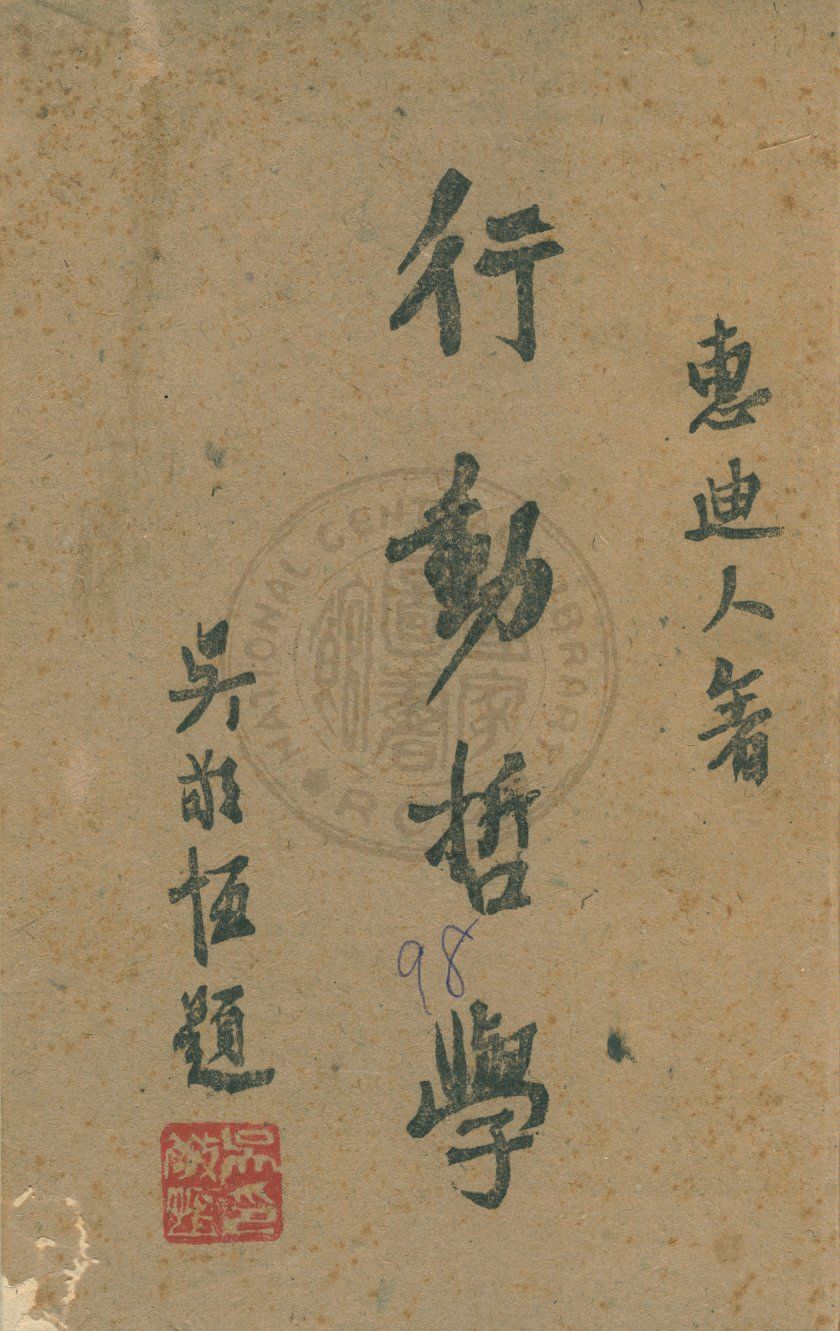 惠迪人著
行動哲學
98
吳敬恆題
吳印敬恆
NATIONAL CENTRAL LIBRARY
國家圖書館